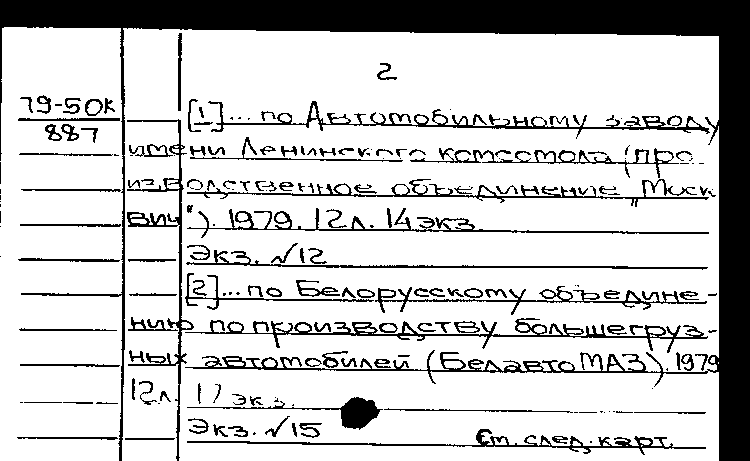 2
79-50к
887
[1]... по Автомобильному заводу
имени Ленинского комсомола (про
изводственное объединение „Моск
вич"). 1979. 12л. 14 экз.
Экз. №12
[2]... по Белорусскому объедине-
нию по производству большегруз-
ных автомобилей (БелавтоМАЗ). 1979
12л. 17 экз.
Экз. №15
См. след. карт.